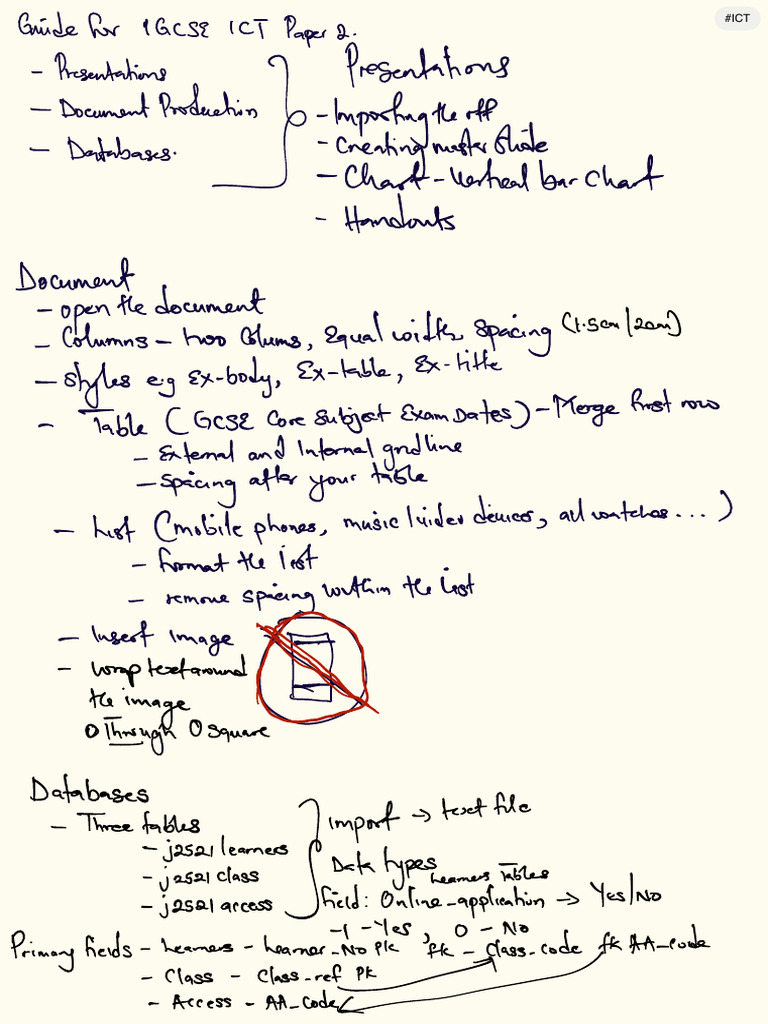 #ICT
Guide for IGCSE ICT Paper 2.
- Presentations
- Document Production
- Databases.
Presentations
- Importing the rtf
- Creating master slide
- Chart - Vertical bar chart
- Handouts
Document
- open the document
- Columns - two Colums, Equal width, spacing (1.5cm/2cm)
- Styles e.g Ex-body, Ex-table, Ex-title
- Table (GCSE Core Subject Exam Dates) - Merge first row
- External and Internal gridline
- Spacing after your table
- List (mobile phones, music/video devices, all watches...)
- format the list
- remove spacing within the list
- Insert image
- wrap text around
the image
O Through O square
Databases
- Three tables
- j2521 learners
- j2521 class
- j2521 access
import → text file
Data types
Learners Tables
field: Online_application → Yes/No
-1 - Yes, 0 - No
Primary fields - Learners - Learner_No PK fk - Class_code fk AA_code
- Class - Class_ref PK
- Access - AA_Code